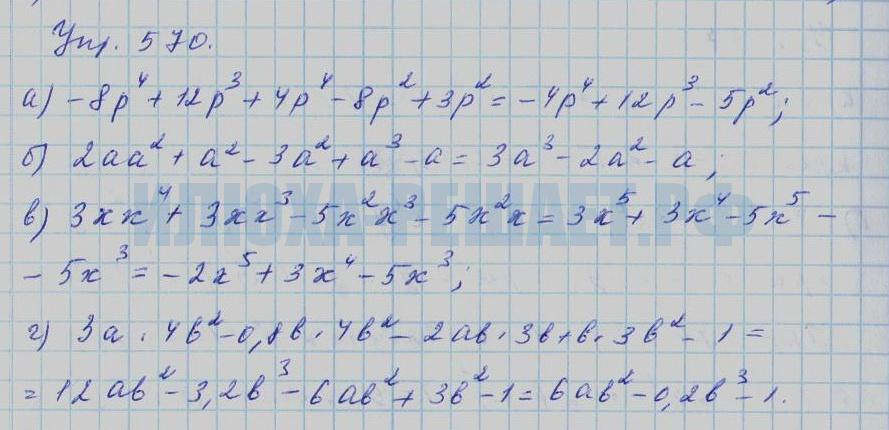 Упр. 570.
а) -8p⁴ + 12p³ + 4p⁴ - 8p² + 3p² = -4p⁴ + 12p³ - 5p²;
б) 2aa² + a² - 3a² + a³ - a = 3a³ - 2a² - a;
в) 3xx⁴ + 3xx³ - 5x²x³ - 5x²x = 3x⁵ + 3x⁴ - 5x⁵ -
- 5x³ = -2x⁵ + 3x⁴ - 5x³;
г) 3a · 4b² - 0,8b · 4b² - 2ab · 3b + b · 3b² - 1 =
= 12ab² - 3,2b³ - 6ab² + 3b² - 1 = 6ab² - 0,2b³ - 1.
ИЛЮХА-РЕШАЕТ.РФ